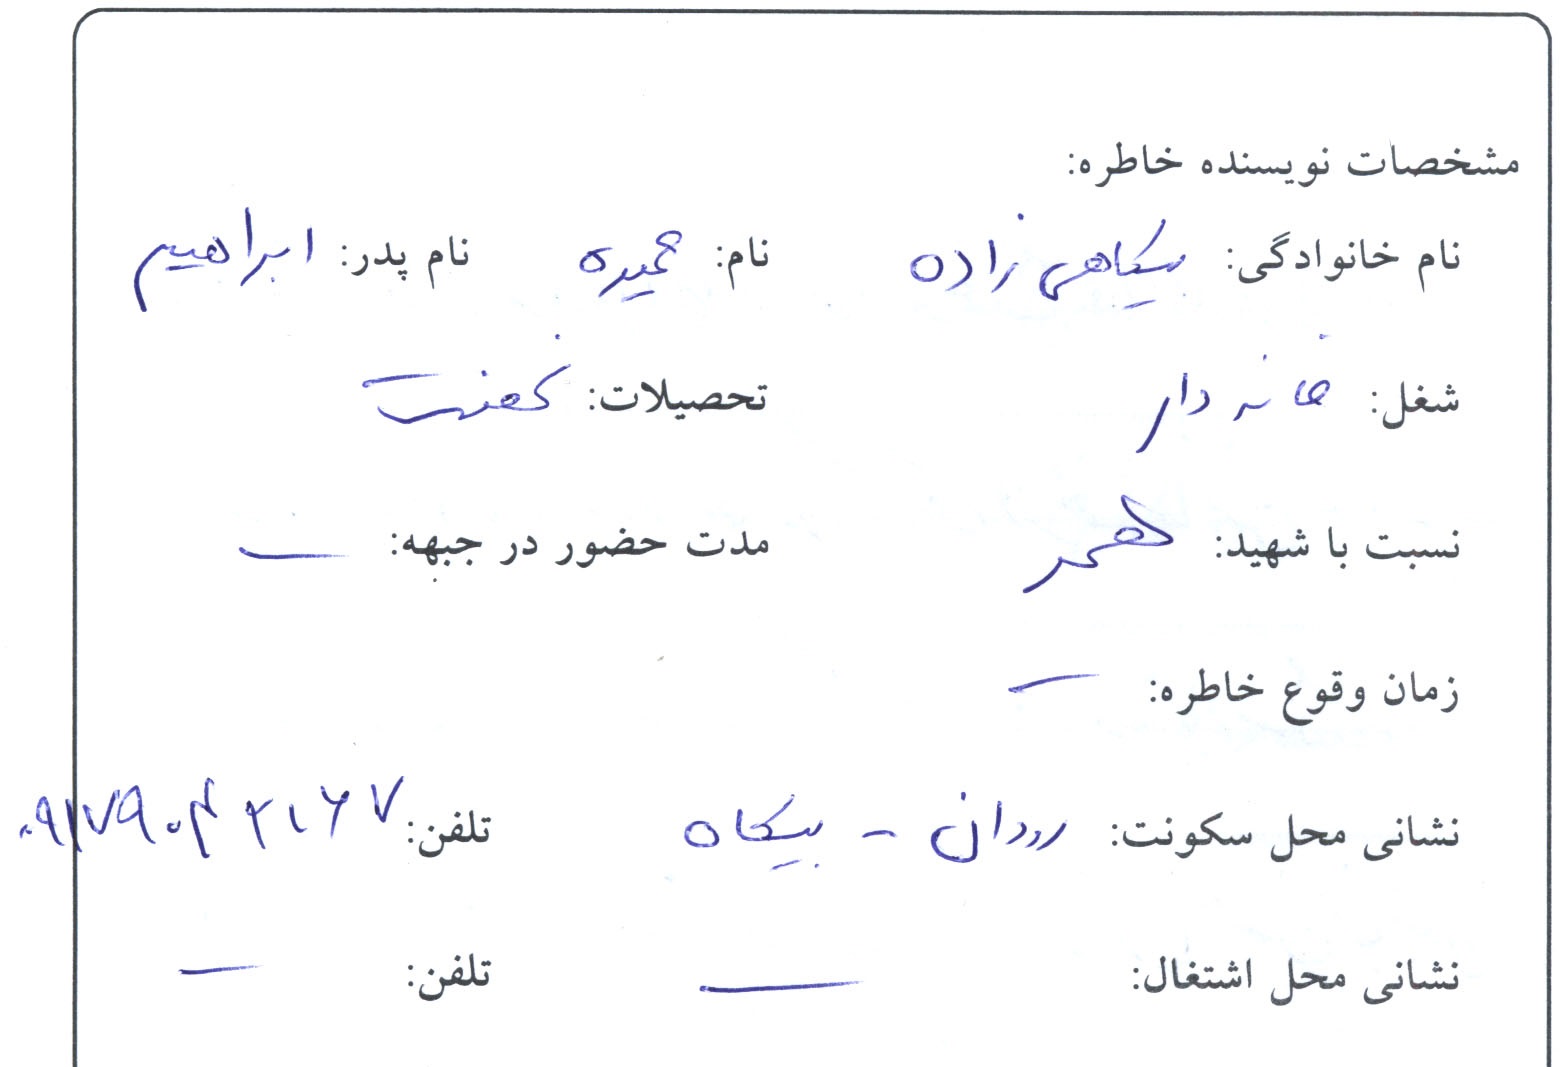 مشخصات نویسنده خاطره:
نام خانوادگی: بیکاهی زاده نام: حمیده نام پدر: ابراهیم
شغل: خانه دار تحصیلات: نهضت
نسبت با شهید: همسر مدت حضور در جبهه: —
زمان وقوع خاطره: —
نشانی محل سکونت: رودان - بیکاه تلفن:
نشانی محل اشتغال: — تلفن: —